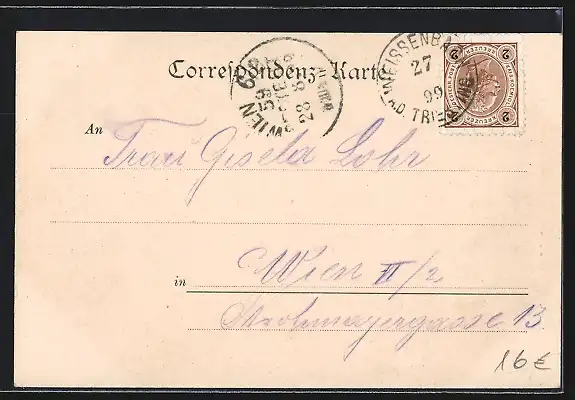 Correspondenz-Karte
WEISSENBA
27
99
A.D. TRIE
WIEN
28 8
2 KREUZER 2
An Frau Gisela Lohr
in Wien II/2
Strohmayergasse 13.
16 €